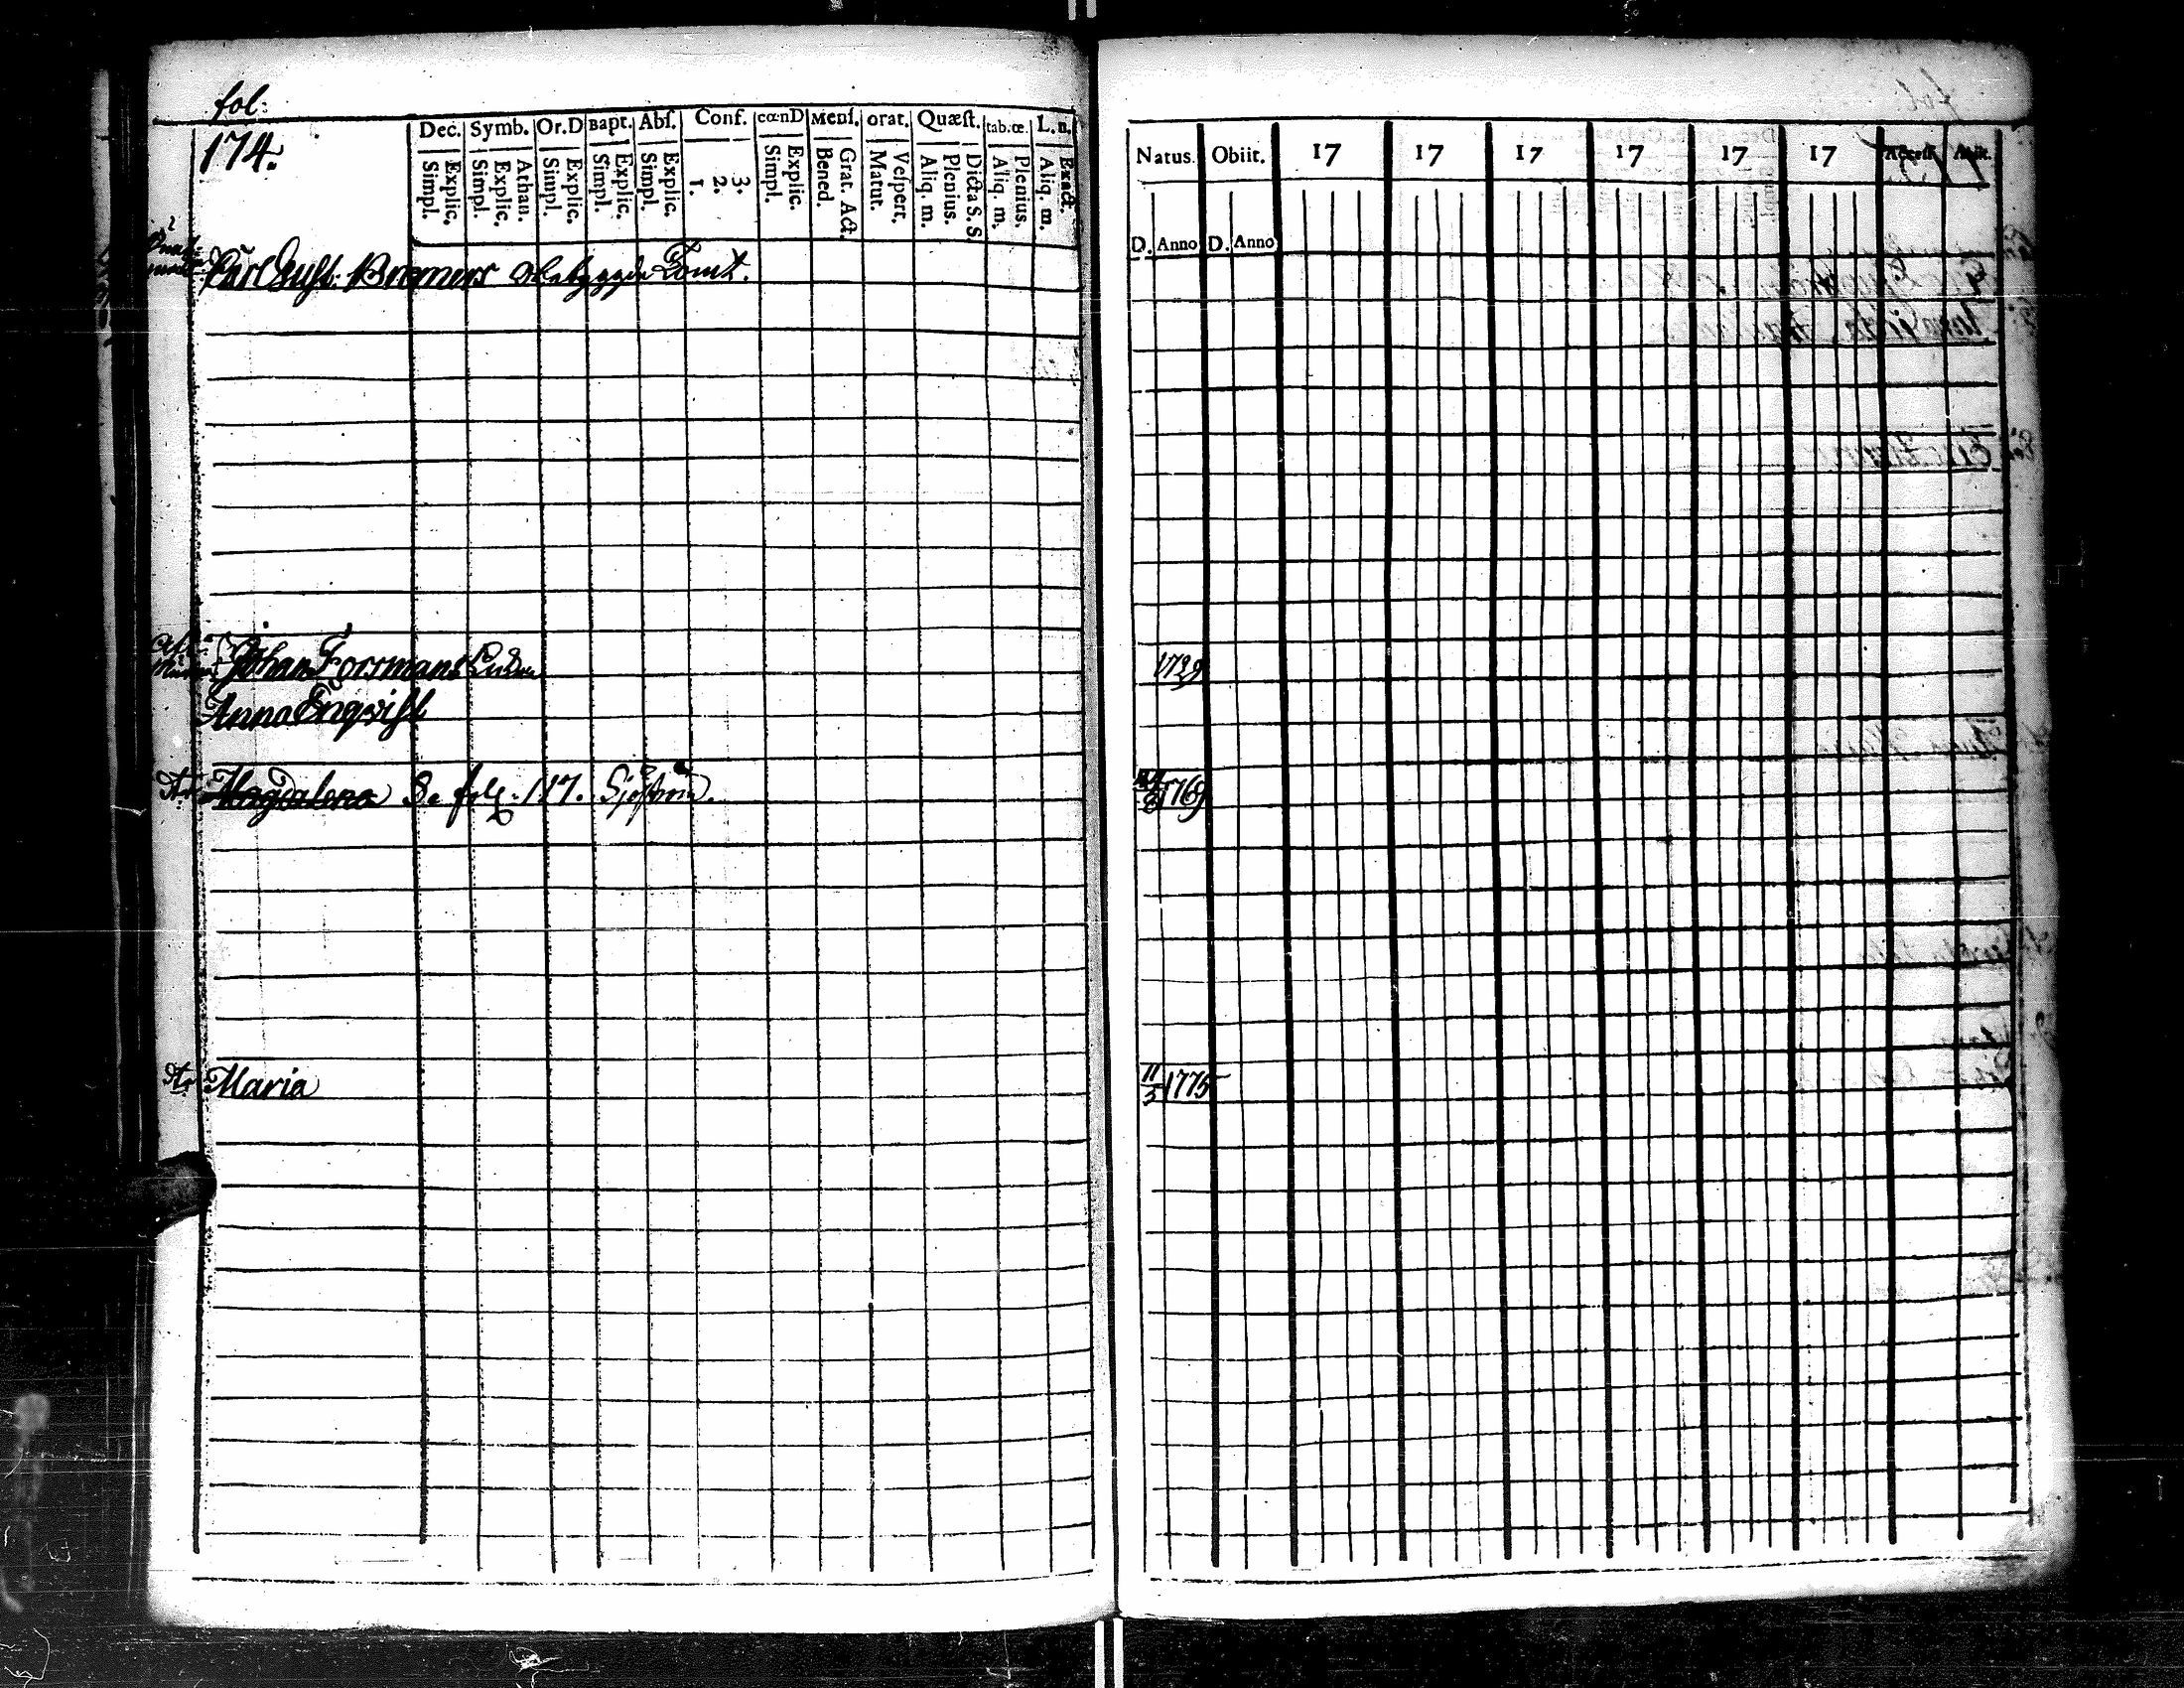 fol.
174.
Dec. Symb. Or.D Bapt. Abſ. Conf. cœnD Menſ. orat. Quæſt. tab.œ. L.n.
Simpl. Explic. Simpl. Explic. Athan. Simpl. Explic. Simpl. Explic. Simpl. Explic. 1. 2. 3. Simpl. Explic. Bened. Grat. Act. Matut. Veſpert. Aliq. m. Plenius. Dicta S. S. Aliq. m. Plenius. Aliq. m. Exact.
Carl Gust. Bremers obebygde Tomt.
Johan Forsmans Enka
Anna Enqvist
Magdalena S. fol. 117. Sjöström.
Maria
Natus. Obiit. 17 17 17 17 17 17 Acceſſ. Abiit.
D. Anno D. Anno
1739
1769
11/3 1775